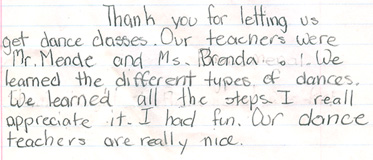 Thank you for letting us
get dance classes. Our teachers were
Mr. Mende and Ms. Brenda . We
learned the different types of dances.
We learned all the steps. I reall
appreciate it. I had fun. Our dance
teachers are really nice.